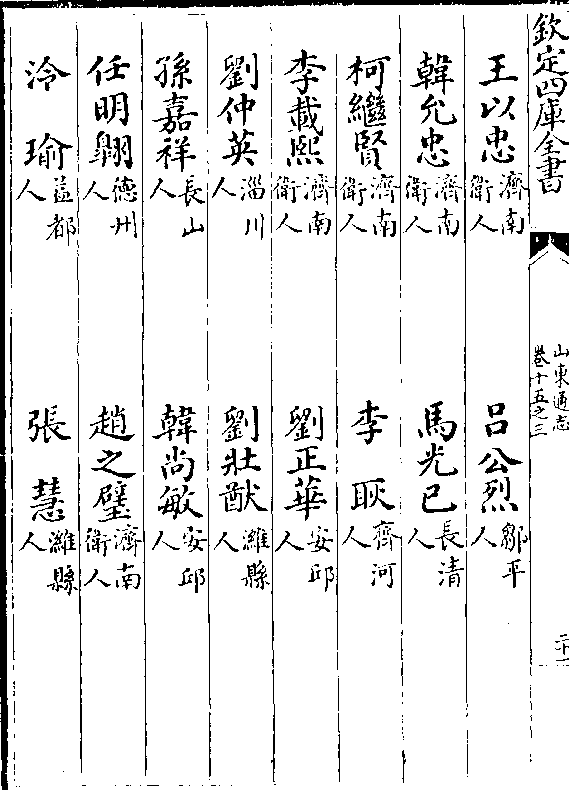 欽定四庫全書
山東通志
卷十五之三
二十一
王以忠濟南衛人 吕公烈鄒平人
韓允忠濟南衛人 馬光已長清人
柯繼賢濟南衛人 李耿齊河人
李載熙濟南衛人 劉正華安邱人
劉仲英淄川人 劉壯猷濰縣人
孫嘉祥長山人 韓尚敏安邱人
任明翺德州人 趙之璧濟南衛人
泠瑜益都人 張慧濰縣人